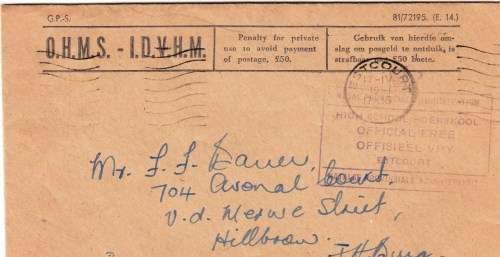 G.P.-S.
81/72195. (E. 14.)
O.H.M.S. - I.D.V.H.M.
Penalty for private
use to avoid payment
of postage, £50.
Gebruik van hierdie om-
slag om posgeld te ontduik, is
strafbaar met £50 boete.
ESTCOURT
HIGH SCHOOL HOËRSKOOL
OFFICIAL FREE
OFFISIEEL VRY
ESTCOURT
Mr. F. F. Bauer,
704 Arsenal Court,
V.d. Merwe Street,
Hillbrow.
JHBurg.